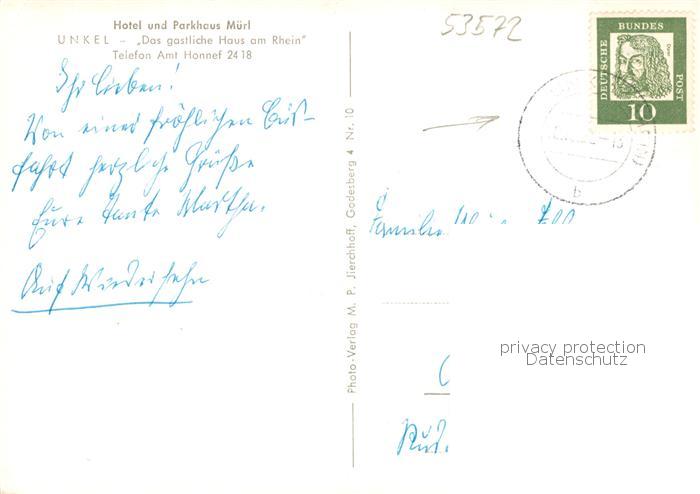 Hotel und Parkhaus Mürl
UNKEL – „Das gastliche Haus am Rhein"
Telefon Amt Honnef 2418
Ihr Lieben!
Von einer fröhlichen Bus-
fahrt herzliche Grüße
Eure Tante Martha.
Auf Wiedersehn
Photo-Verlag M. P. Jierchhoff, Godesberg 4 Nr. 10
53572
DEUTSCHE BUNDES POST
Dürer
10
b
Familie
privacy protection
Datenschutz